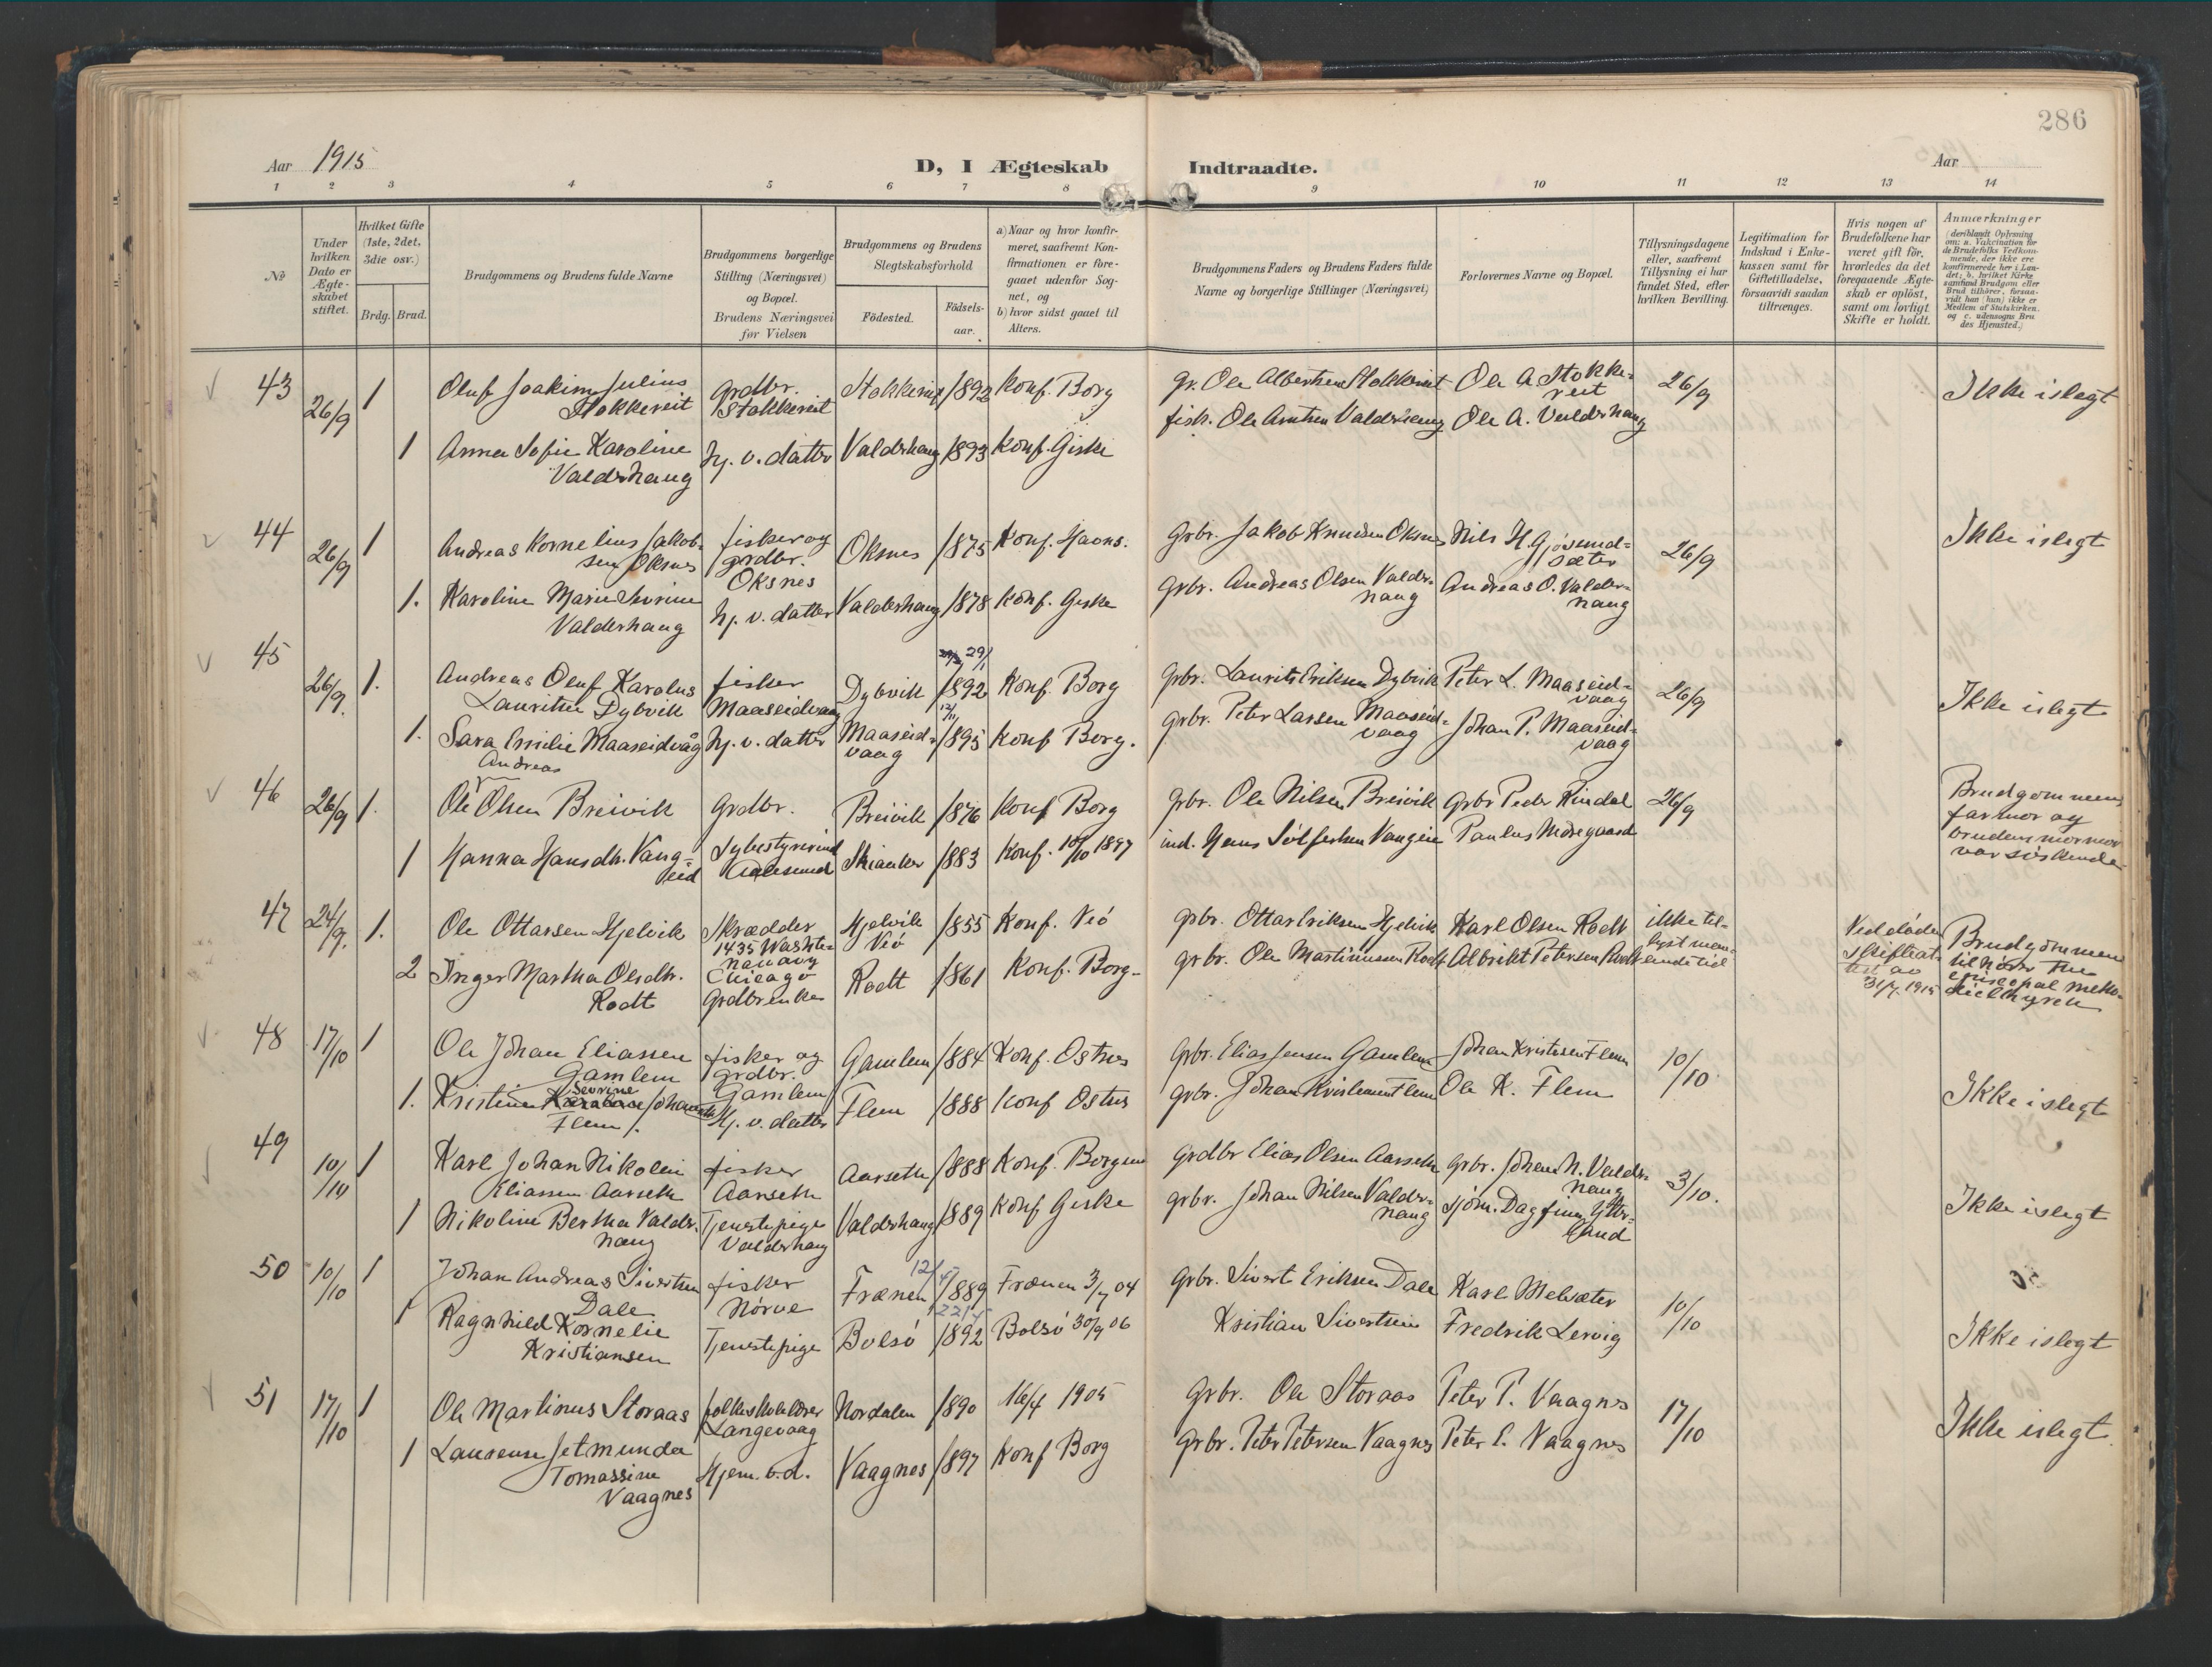 286
Aar 1915
D, I Ægteskab Indtraadte.
Aar
1 2 3 4 5 6 7 8 9 10 11 12 13 14
No
Under hvilken Dato er Ægteskabet stiftet.
Hvilket Gifte (1ste, 2det, 3die osv.)
Brdg. Brud.
Brudgommens og Brudens fulde Navne
Brudgommens borgerlige Stilling (Næringsvei) og Bopæl. Brudens Næringsvei før Vielsen
Brudgommens og Brudens Slegtskabsforhold
Fødested. Fødsels-aar.
a) Naar og hvor konfirmeret, saafremt Konfirmationen er foregaaet udenfor Sognet, og
b) hvor sidst gaaet til Alters.
Brudgommens Faders og Brudens Faders fulde Navne og borgerlige Stillinger (Næringsvei)
Forlovernes Navne og Bopæl.
Tillysningsdagene eller, saafremt Tillysning ei har fundet Sted, efter hvilken Bevilling.
Legitimation for Indskud i Enkekassen samt for Giftetilladelse, forsaavidt saadan tiltrænges.
Hvis nogen af Brudefolkene har været gift før, hvorledes da det foregaaende Ægteskab er opløst, samt om lovligt Skifte er holdt.
Anmærkninger (deriblandt Oplysning om: a. Vakcination for de Brudefolks Vedkommende, der ikke ere konfirmerede her i Landet; b. hvilket Kirkesamfund Brudgom eller Brud tilhører, forsaavidt han (hun) ikke er Medlem af Statskirken. og c. udensogns Brudes Hjemsted.)
43 26/9 1 Oluf Joakim Julius Stokkereit grdbr. Stokkereit 1892 Konf. Borg gr. Ole Albertsen Stokkereit Ole A. Stokkereit 26/9 Ikke i slegt
1 Anna Sofie Karoline Valderhaug hj. v. datter Valderhaug 1893 Konf. Giske fisk. Ole Valderhaug Ole A. Valderhaug
44 26/9 1 Andreas Kornelius Jakobsen Oksnes fisker og grdbr. Oksnes Oksnes 1875 Konf. grbr. Jakob Knudsen Oksnes Nils H. 26/9 Ikke i slegt
1. Karoline Marie Severine Valderhaug hj. v. datter Valderhaug 1878 Konf. Giske grbr. Andreas Olsen Valderhaug Andreas O. Valderhaug
45 26/9. 1. Andreas Oluf Karolus Lauritsen Dybvik fisker Maaseidvaag Dybvik 29/1 1892 Konf. Borg grbr. Laurits Eriksen Dybvik Peter L. Maaseidvaag 26/9 Ikke i slegt
1. Sara Emilie Maaseidvåg hj. v. datter Maaseidvaag 12/11 1895 Konf Borg. grbr. Peter Larsen Maaseidvaag Johan P. Maaseidvaag
46 26/9 1. Ole Andreas Olsen Breivik grdbr. Breivik 1876 Konf Borg grbr. Ole Nilsen Breivik grbr Peder Rindal 26/9 Brudgommens farmor og brudens mormor var søskende
1 Hanna Hansdtr. Aalesund 1883 Konf. 10/10 1897 ind. Hans Paulus Møregaard
47 24/9. 1. Ole Ottarsen Hjelvik Skrædder 1435 Chicago Hjelvik Veø 1855 Konf. Veø grbr. Ottar Eriksen Hjelvik Karl Olsen Rødt ikke tillyst Brudgommen tilhører The episcopal
2 Inger Martha Olsdtr. Rødt Grdbrenke Rødt 1861 Konf. Borg grbr. Ole Martinussen Rødt Albrikt Petersen Rødt 31/7 1915
48 17/10 1 Ole Johan Eliassen Gamlem fisker og grdbr. Gamlem Gamlem 1884 Konf. Ostnes grbr. Elias Jensen Gamlem Johan Kristensen Flem 10/10 Ikke i slegt
1. Kristine Severine Flem hj. v. datter Flem 1888 Konf Ostnes grbr. Johan Kristensen Flem Ole K. Flem
49 10/10 1 Karl Johan Nikolai Eliassen Aarseth fisker Aarseth Aarseth 1888 Konf. Borgund grdbr Elias Olsen Aarseth grbr. Johan N. Valderhaug 3/10. Ikke i slegt
1 Nikoline Bertha Valderhaug Tjenestepige Valderhaug Valderhaug 1889 Konf Giske grbr. Johan Nilsen Valderhaug sjøm. Dagfinn Ytterland
50 10/10 1 Johan Andreas Sivertsen Dale fisker Nørve Frænen 1889 Frænen 3/7 04 grbr. Sivert Eriksen Dale Karl Melsæter 10/10 Ikke i slegt
1 Ragnhild Kornelie Kristiansen Tjenestepige Bolsø 1892 Bolsø 30/9 06 Kristian Sivertsen Fredrik Lervig
51 17/10 1 Ole Martinus Storaas folkeskolelærer Langevaag Nordalen 1890 16/4 1905 grbr. Ole Storaas Peter P. Vaagnes 17/10 Ikke i slegt
1 Laurense Jetmunda Tomassine Vaagnes Hjem. v. d. Vaagnes 1897 Konf Borg grbr. Peter Petersen Vaagnes Peter E. Vaagnes